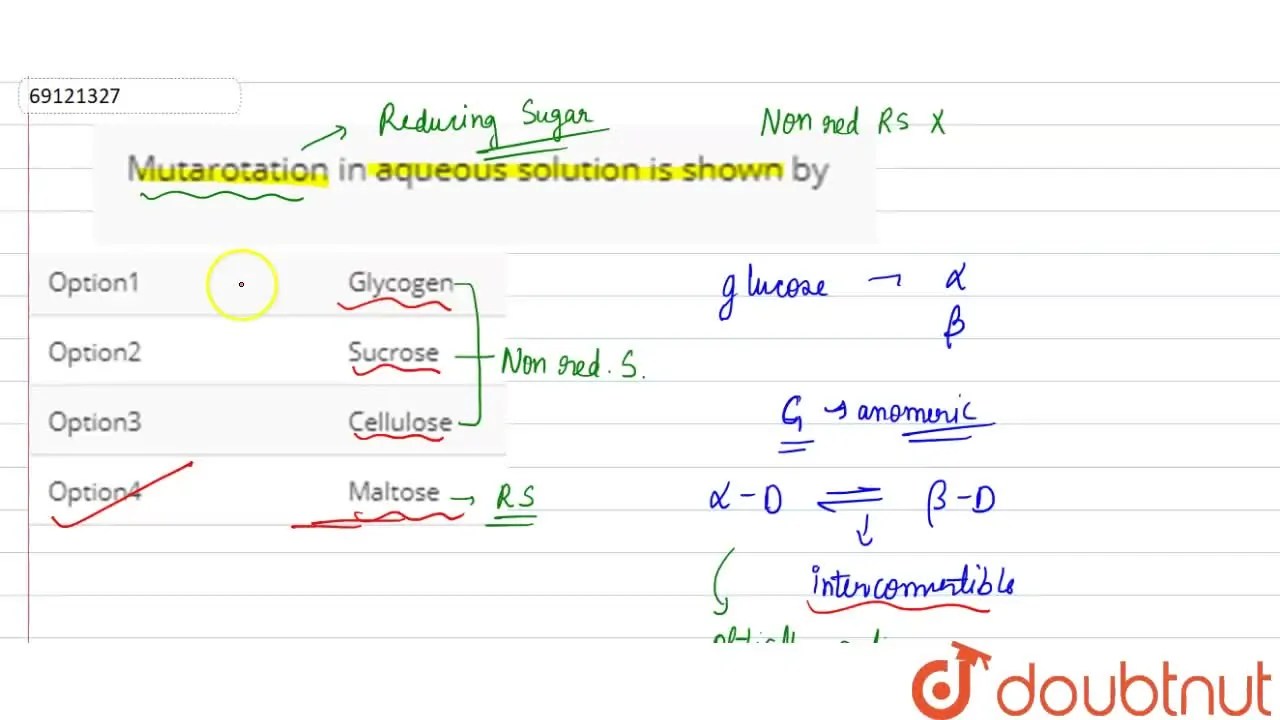 69121327
Reducing Sugar
Non red RS X
Mutarotation in aqueous solution is shown by
Option1 Glycogen
Option2 Sucrose
Option3 Cellulose
Option4 Maltose
Non red. S.
RS
glucose → α
β
C₁ → anomeric
α-D ⇌ β-D
interconvertible
doubtnut